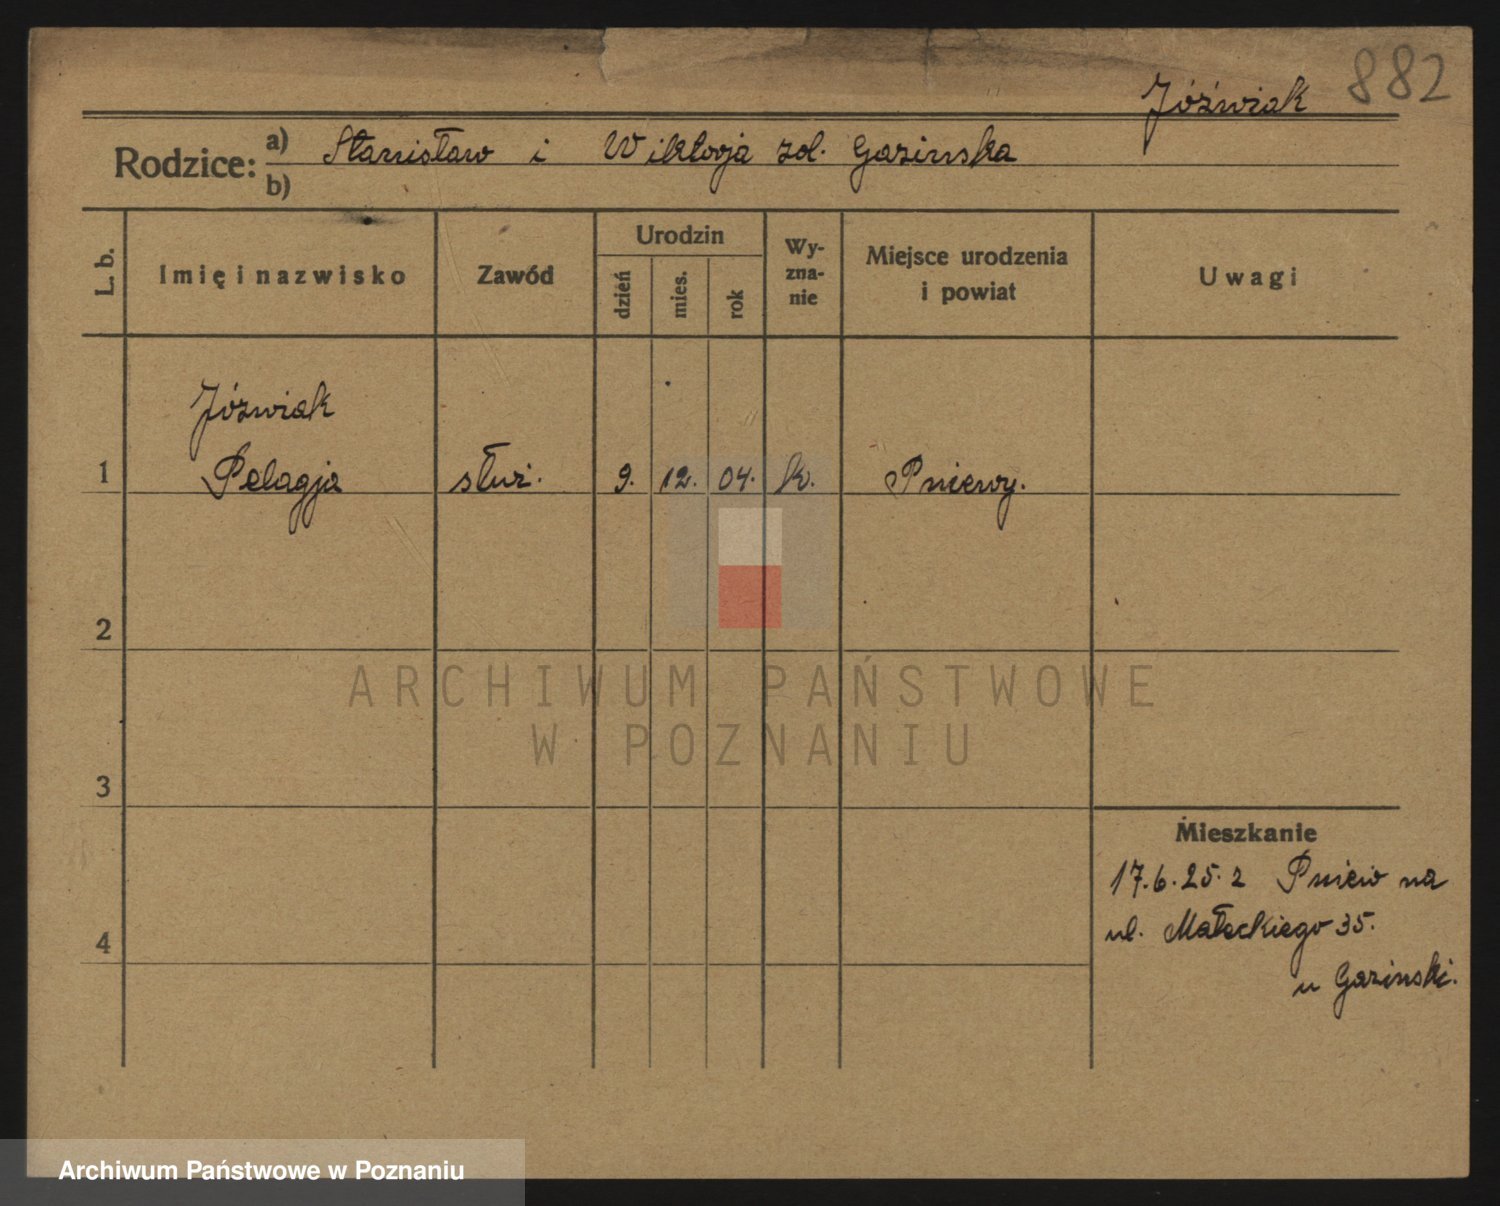 Jóźwiak 882
Rodzice: a) Stanisław i Wiktorja zd. Gazinska
b)
L. b.
Imię i nazwisko
Zawód
Urodzin
dzień
mies.
rok
Wy-
zna-
nie
Miejsce urodzenia
i powiat
Uwagi
Józwiak
1 Pelagja służ. 9. 12. 04. k. Pniewy.
2
ARCHIWUM PAŃSTWOWE
W POZNANIU
3
Mieszkanie
17.6.25. z Pniew na
ul. Małeckiego 35.
4
u Gazinski.
Archiwum Państwowe w Poznaniu